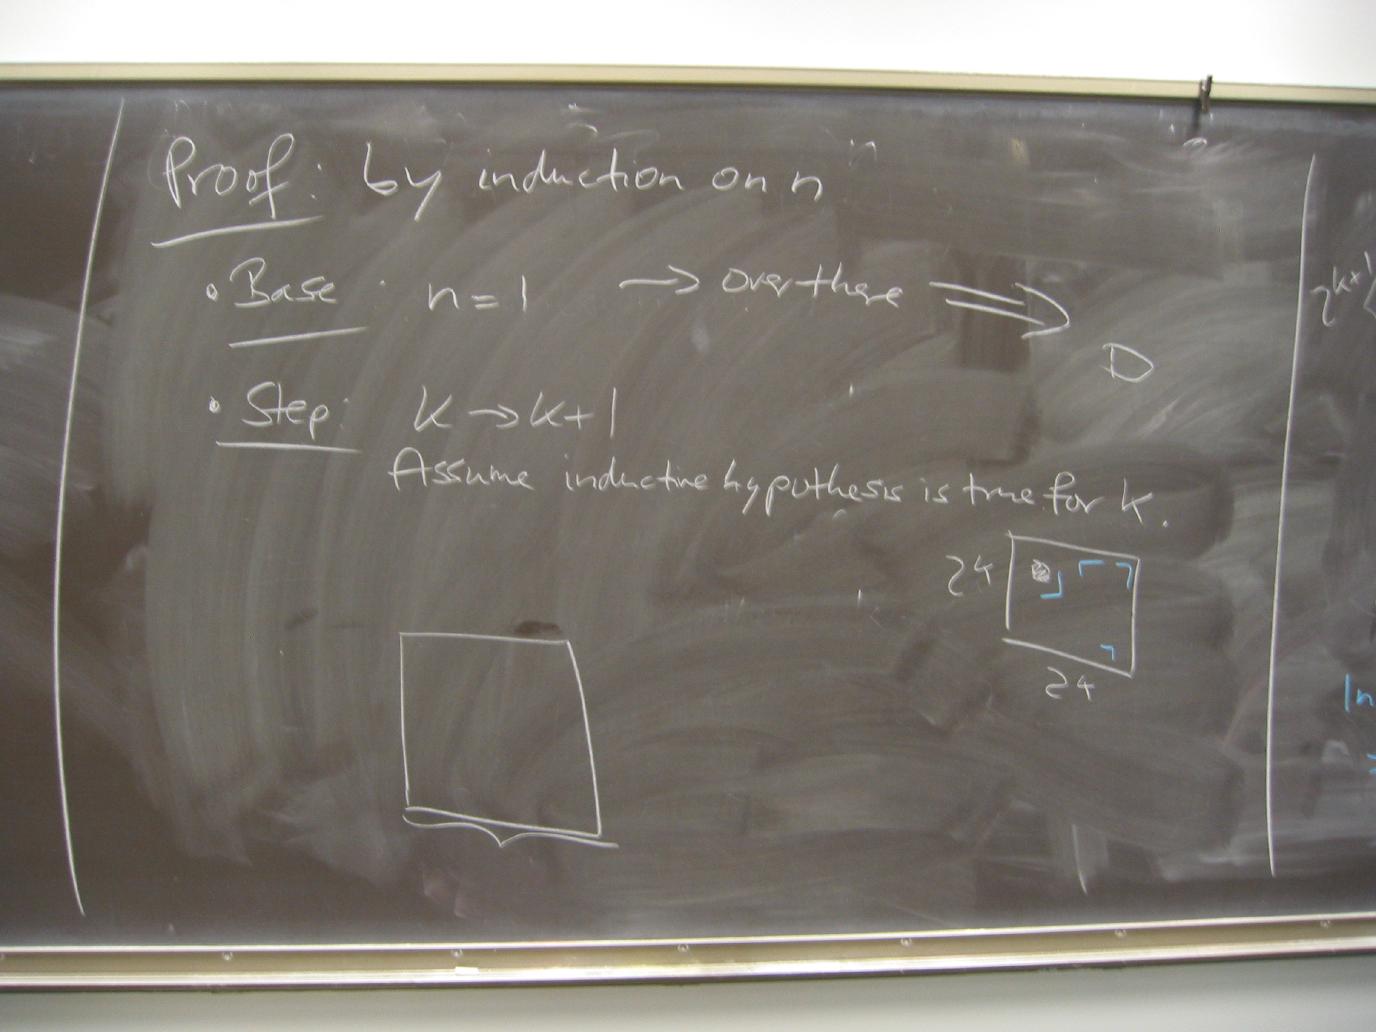 Proof: by induction on n
• Base: n=1 → over there ⇒
D
• Step: k→k+1
Assume inductive hypothesis is true for k.
2k
2k
2^{k+1}
In